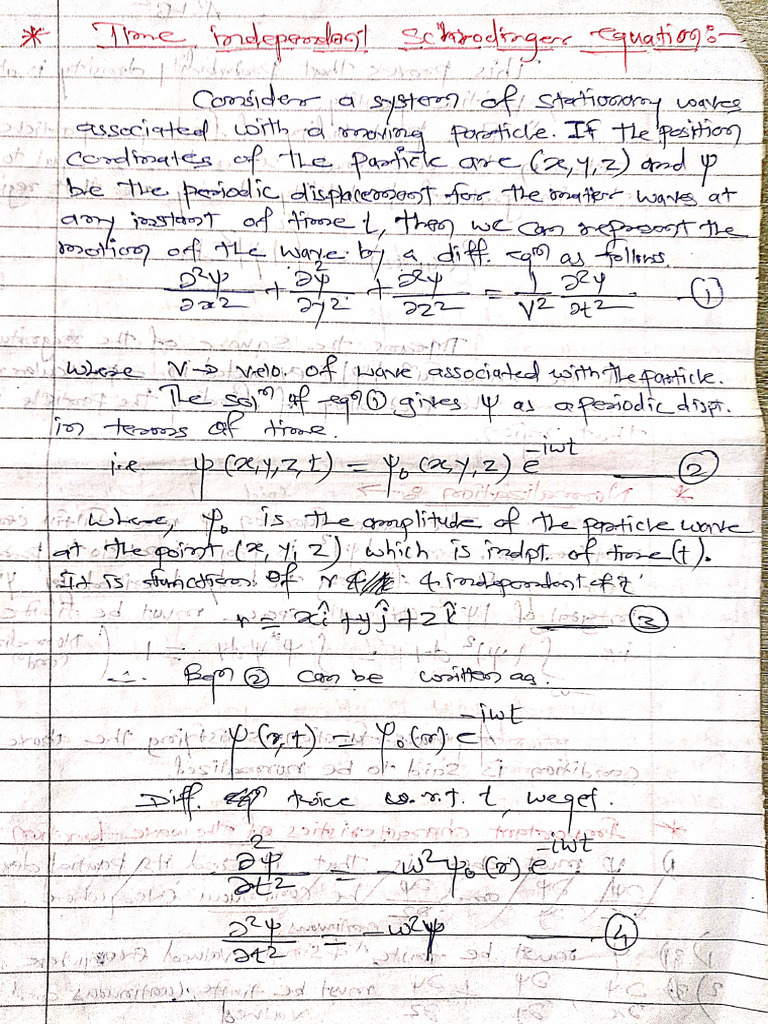 * Time independent Schrodinger equation:-
Consider a system of stationary waves
associated with a moving particle. If the position
coordinates of the particle are (x,y,z) and ψ
be the periodic displacement for the matter waves at
any instant of time t, then we can represent the
motion of the wave by a diff. eqn as follows.
∂²ψ/∂x² + ∂²ψ/∂y² + ∂²ψ/∂z² = 1/V² ∂²ψ/∂t² - ①
where V → velo. of wave associated with the particle.
The solⁿ of eqn ① gives ψ as a periodic dispt.
in terms of time.
i.e. ψ(x,y,z,t) = ψ₀(x,y,z) e^-iωt — ②
where, ψ₀ is the amplitude of the particle wave
at the point (x, y, z) which is indpt. of time(t).
It is function of r & independent of t
r = xî + yĵ + zk̂ — ③
∴ Eqn ② can be written as.
ψ(r,t) = ψ₀(r) e^-iωt
Diff. twice w.r.t. t, we get.
∂²ψ/∂t² = -ω²ψ₀(r) e^-iωt
∂²ψ/∂t² = -ω²ψ — ④